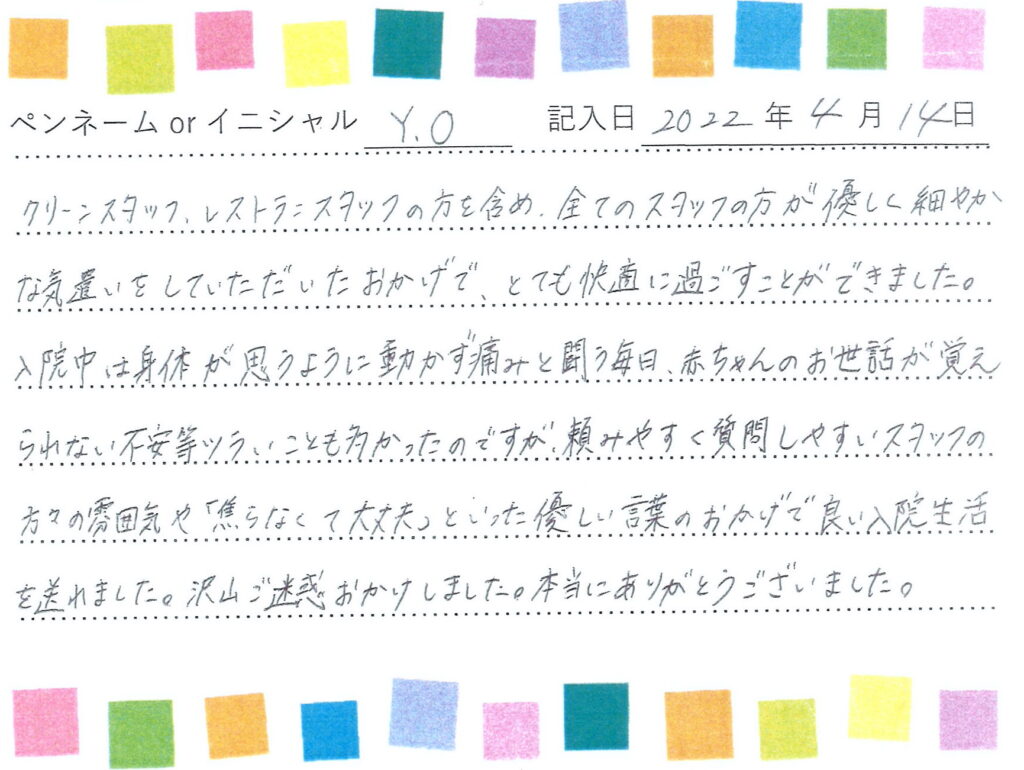 ペンネーム or イニシャル Y.O 記入日 2022 年 4 月 14 日
クリーンスタッフ、レストランスタッフの方を含め、全てのスタッフの方が優しく細やか
な気遣いをしていただいたおかげで、とても快適に過ごすことができました。
入院中は身体が思うように動かず痛みと闘う毎日、赤ちゃんのお世話が覚え
られない不安等ツラいことも多かったのですが、頼みやすく質問しやすいスタッフの
方々の雰囲気や「焦らなくて大丈夫」といった優しい言葉のおかげで良い入院生活
を送れました。沢山ご迷惑おかけしました。本当にありがとうございました。